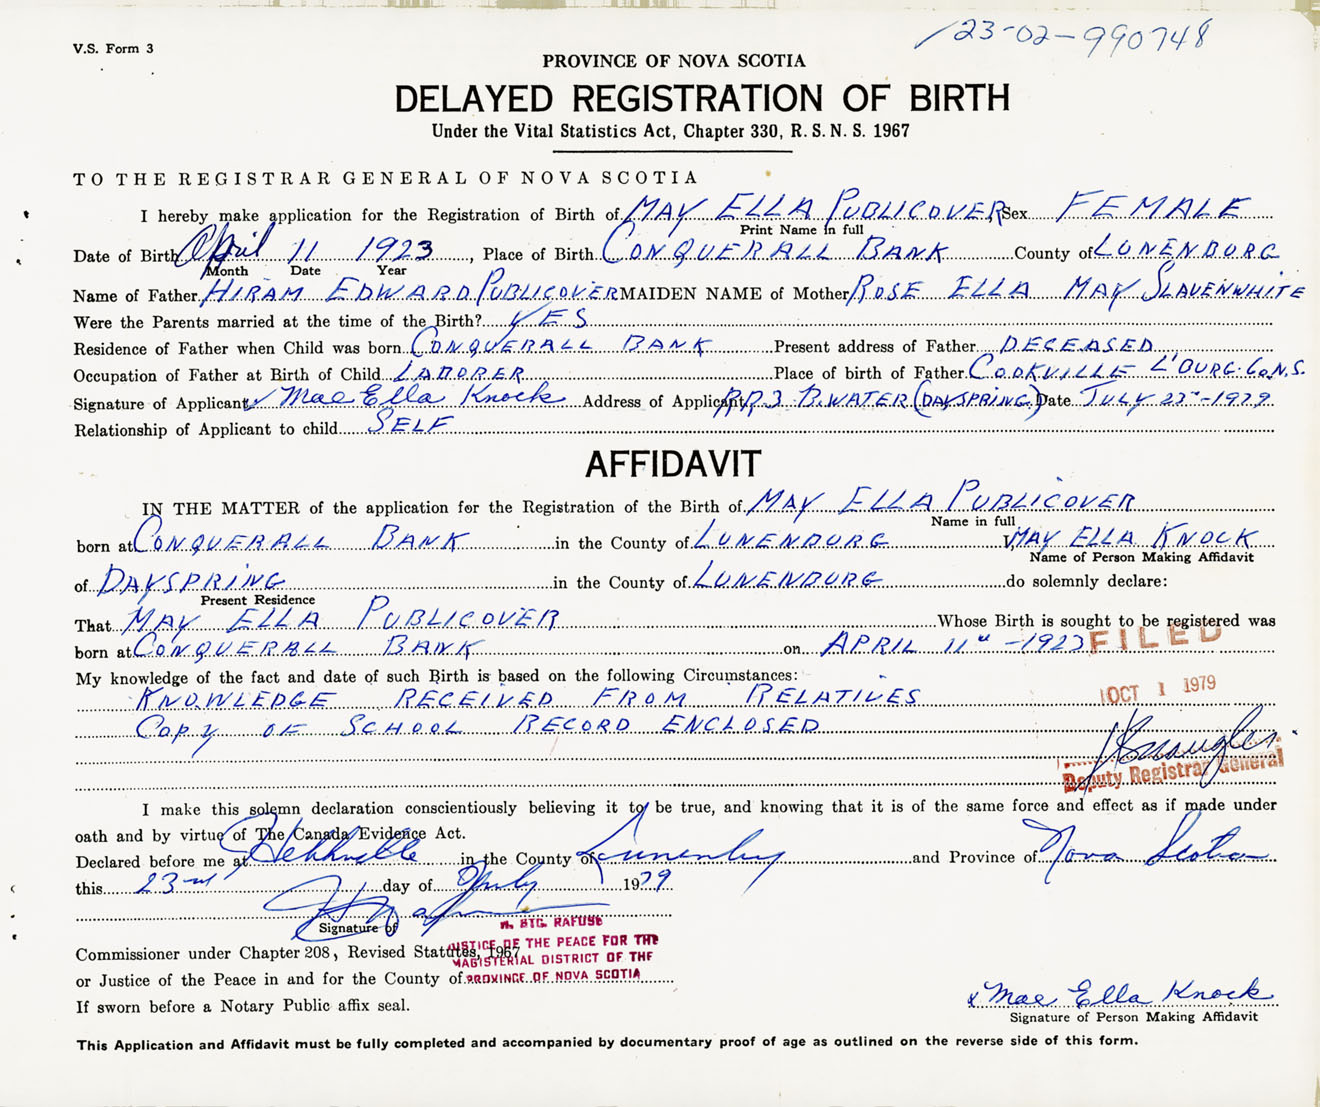 V.S. Form 3
123-02-990748
PROVINCE OF NOVA SCOTIA
DELAYED REGISTRATION OF BIRTH
Under the Vital Statistics Act, Chapter 330, R.S.N.S. 1967
TO THE REGISTRAR GENERAL OF NOVA SCOTIA
I hereby make application for the Registration of Birth of MAY ELLA PUBLICOVER, Sex FEMALE
Print Name in full
Date of Birth April 11 1923, Place of Birth CONQUERALL BANK County of LUNENBURG
Month Date Year
Name of Father HIRAM EDWARD PUBLICOVER MAIDEN NAME of Mother ROSE ELLA MAY SLAVENWHITE
Were the Parents married at the time of the Birth? YES
Residence of Father when Child was born CONQUERALL BANK Present address of Father DECEASED
Occupation of Father at Birth of Child LABORER Place of birth of Father COOKVILLE L'BURG. Co. N.S.
Signature of Applicant Mae Ella Knock Address of Applicant R.R.3 B.WATER (DAYSPRING) Date JULY 23rd-1979
Relationship of Applicant to child SELF
AFFIDAVIT
IN THE MATTER of the application for the Registration of the Birth of MAY ELLA PUBLICOVER
Name in full
born at CONQUERALL BANK in the County of LUNENBURG I, MAY ELLA KNOCK
Name of Person Making Affidavit
of DAYSPRING in the County of LUNENBURG do solemnly declare:
Present Residence
That MAY ELLA PUBLICOVER Whose Birth is sought to be registered was
born at CONQUERALL BANK on APRIL 11th -1923
FILED
My knowledge of the fact and date of such Birth is based on the following Circumstances:
KNOWLEDGE RECEIVED FROM RELATIVES
OCT 1 1979
COPY OF SCHOOL RECORD ENCLOSED
Deputy Registrar General
I make this solemn declaration conscientiously believing it to be true, and knowing that it is of the same force and effect as if made under
oath and by virtue of The Canada Evidence Act.
Declared before me at Hebbville in the County of Lunenburg and Province of Nova Scotia
this 23rd day of July 1979
Signature of
H. STC. RAFUSE
JUSTICE OF THE PEACE FOR THE
MAGISTERIAL DISTRICT OF THE
PROVINCE OF NOVA SCOTIA
Commissioner under Chapter 208, Revised Statutes, 1967
or Justice of the Peace in and for the County of
If sworn before a Notary Public affix seal.
x Mae Ella Knock
Signature of Person Making Affidavit
This Application and Affidavit must be fully completed and accompanied by documentary proof of age as outlined on the reverse side of this form.